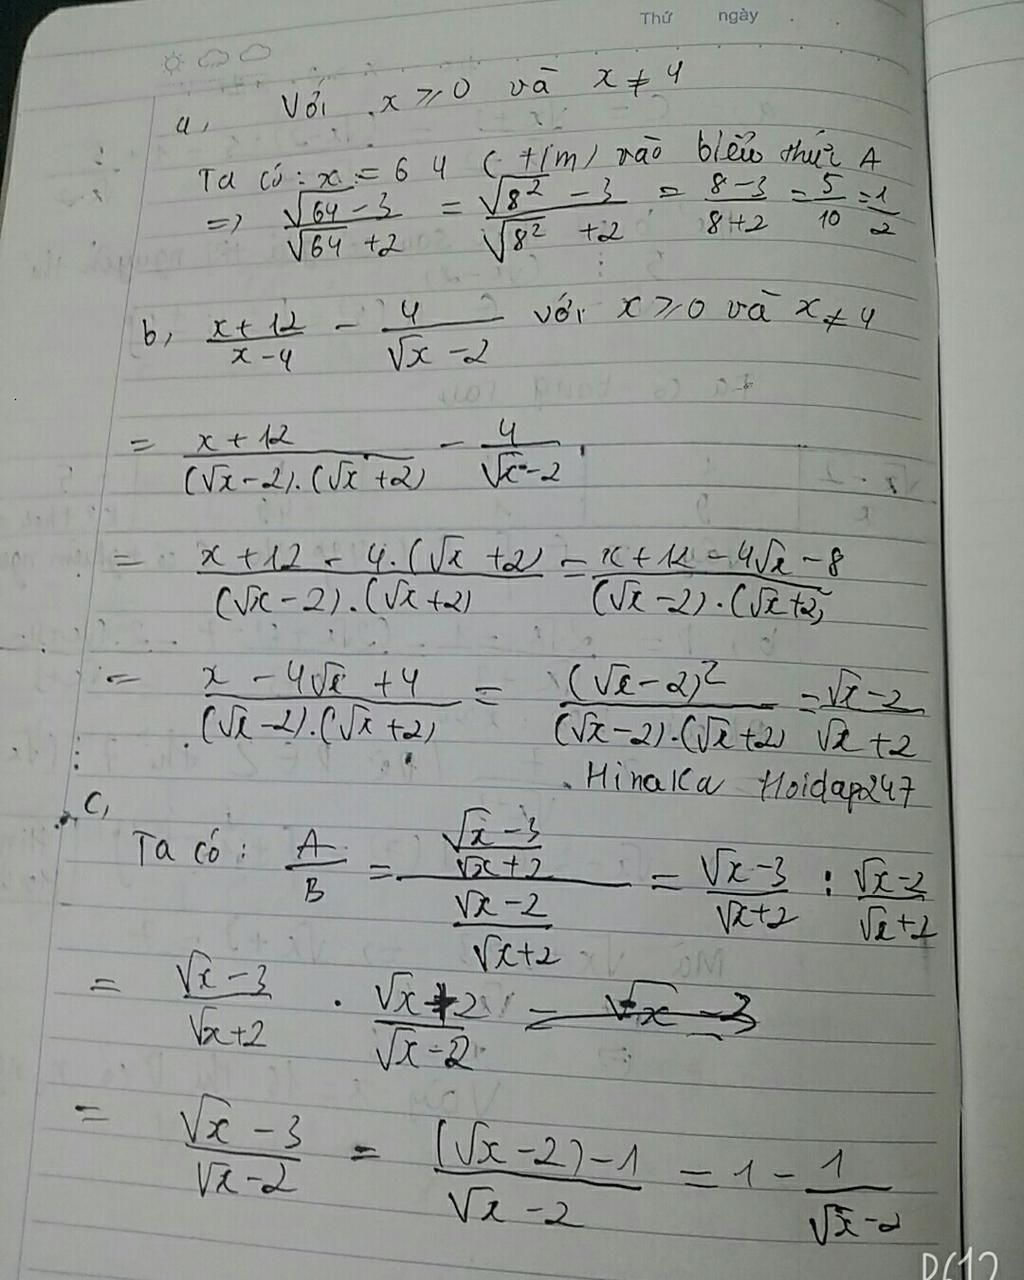 Thứ ngày
a, Với x ≥ 0 và x ≠ 4
Ta có: x = 64 (t/m) vào biểu thức A
=> (√64 - 3)/(√64 + 2) = (√8² - 3)/(√8² + 2) = (8-3)/(8+2) = 5/10 = 1/2
b, (x+12)/(x-4) - 4/(√x - 2) với x ≥ 0 và x ≠ 4
= (x+12)/((√x-2).(√x+2)) - 4/(√x-2)
= (x+12-4.(√x+2))/((√x-2).(√x+2)) = (x+12-4√x-8)/((√x-2).(√x+2))
= (x-4√x+4)/((√x-2).(√x+2)) = (√x-2)²/((√x-2).(√x+2)) = (√x-2)/(√x+2)
Hinaka Hoidap247
c,
Ta có: A/B = ((√x-3)/(√x+2))/((√x-2)/(√x+2)) = (√x-3)/(√x+2) : (√x-2)/(√x+2)
= (√x-3)/(√x+2) . (√x+2)/(√x-2) = √x-3
= (√x-3)/(√x-2) = ((√x-2)-1)/(√x-2) = 1 - 1/(√x-2)